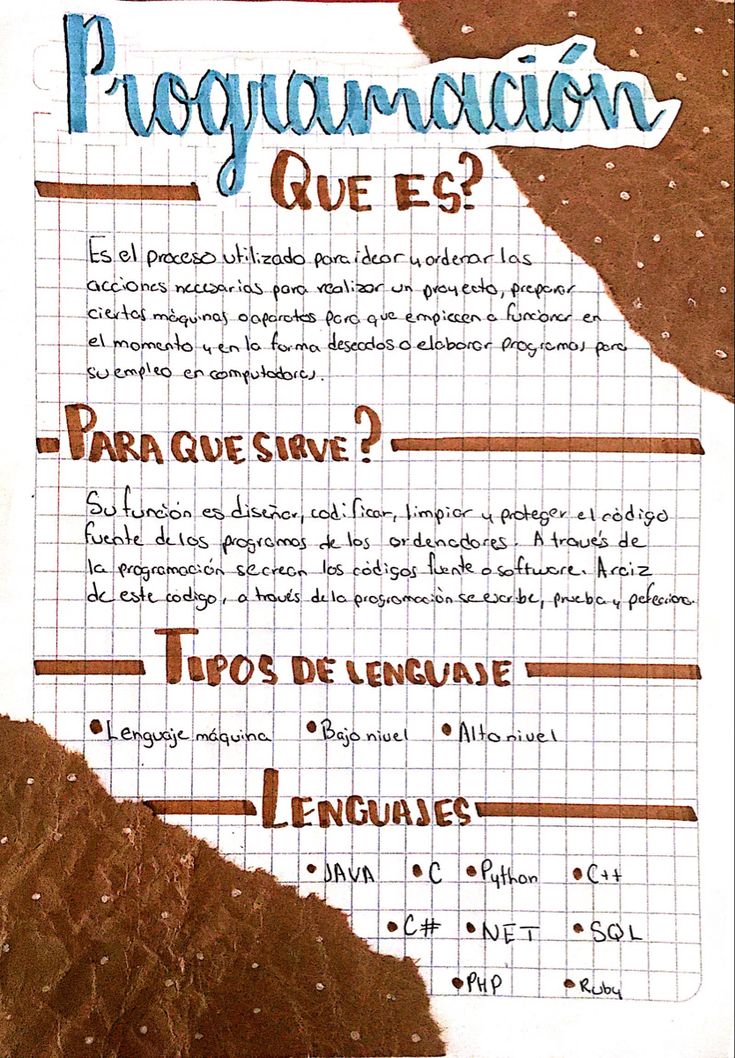 Programación
QUE ES?
Es el proceso utilizado para idear y ordenar las
acciones necesarias para realizar un proyecto, preparar
ciertas máquinas o aparatos para que empiecen a funcionar en
el momento y en la forma deseados o elaborar programas para
su empleo en computadores.
PARA QUE SIRVE?
Su función es diseñar, codificar, limpiar y proteger el código
fuente de los programas de los ordenadores. A través de
la programación se crean los códigos fuente o software. A raiz
de este código, a través de la programación se escribe, prueba y pefeciona.
TIPOS DE LENGUAJE
• Lenguaje máquina • Bajo nivel • Alto nivel
LENGUAJES
• JAVA • C • Python • C++
• C# • NET • SQL
• PHP • Ruby